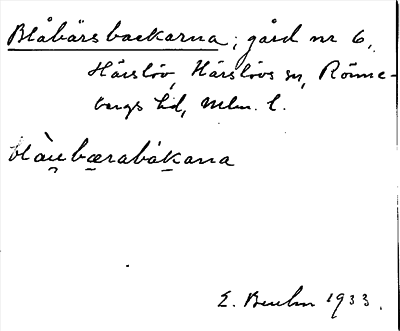 Blåbärsbackarna, gård nr 6,
Härslöv, Härslövs sn, Rönne-
bergs hd, Mlm. l.
blàu̯bærabákana
E. 1933.